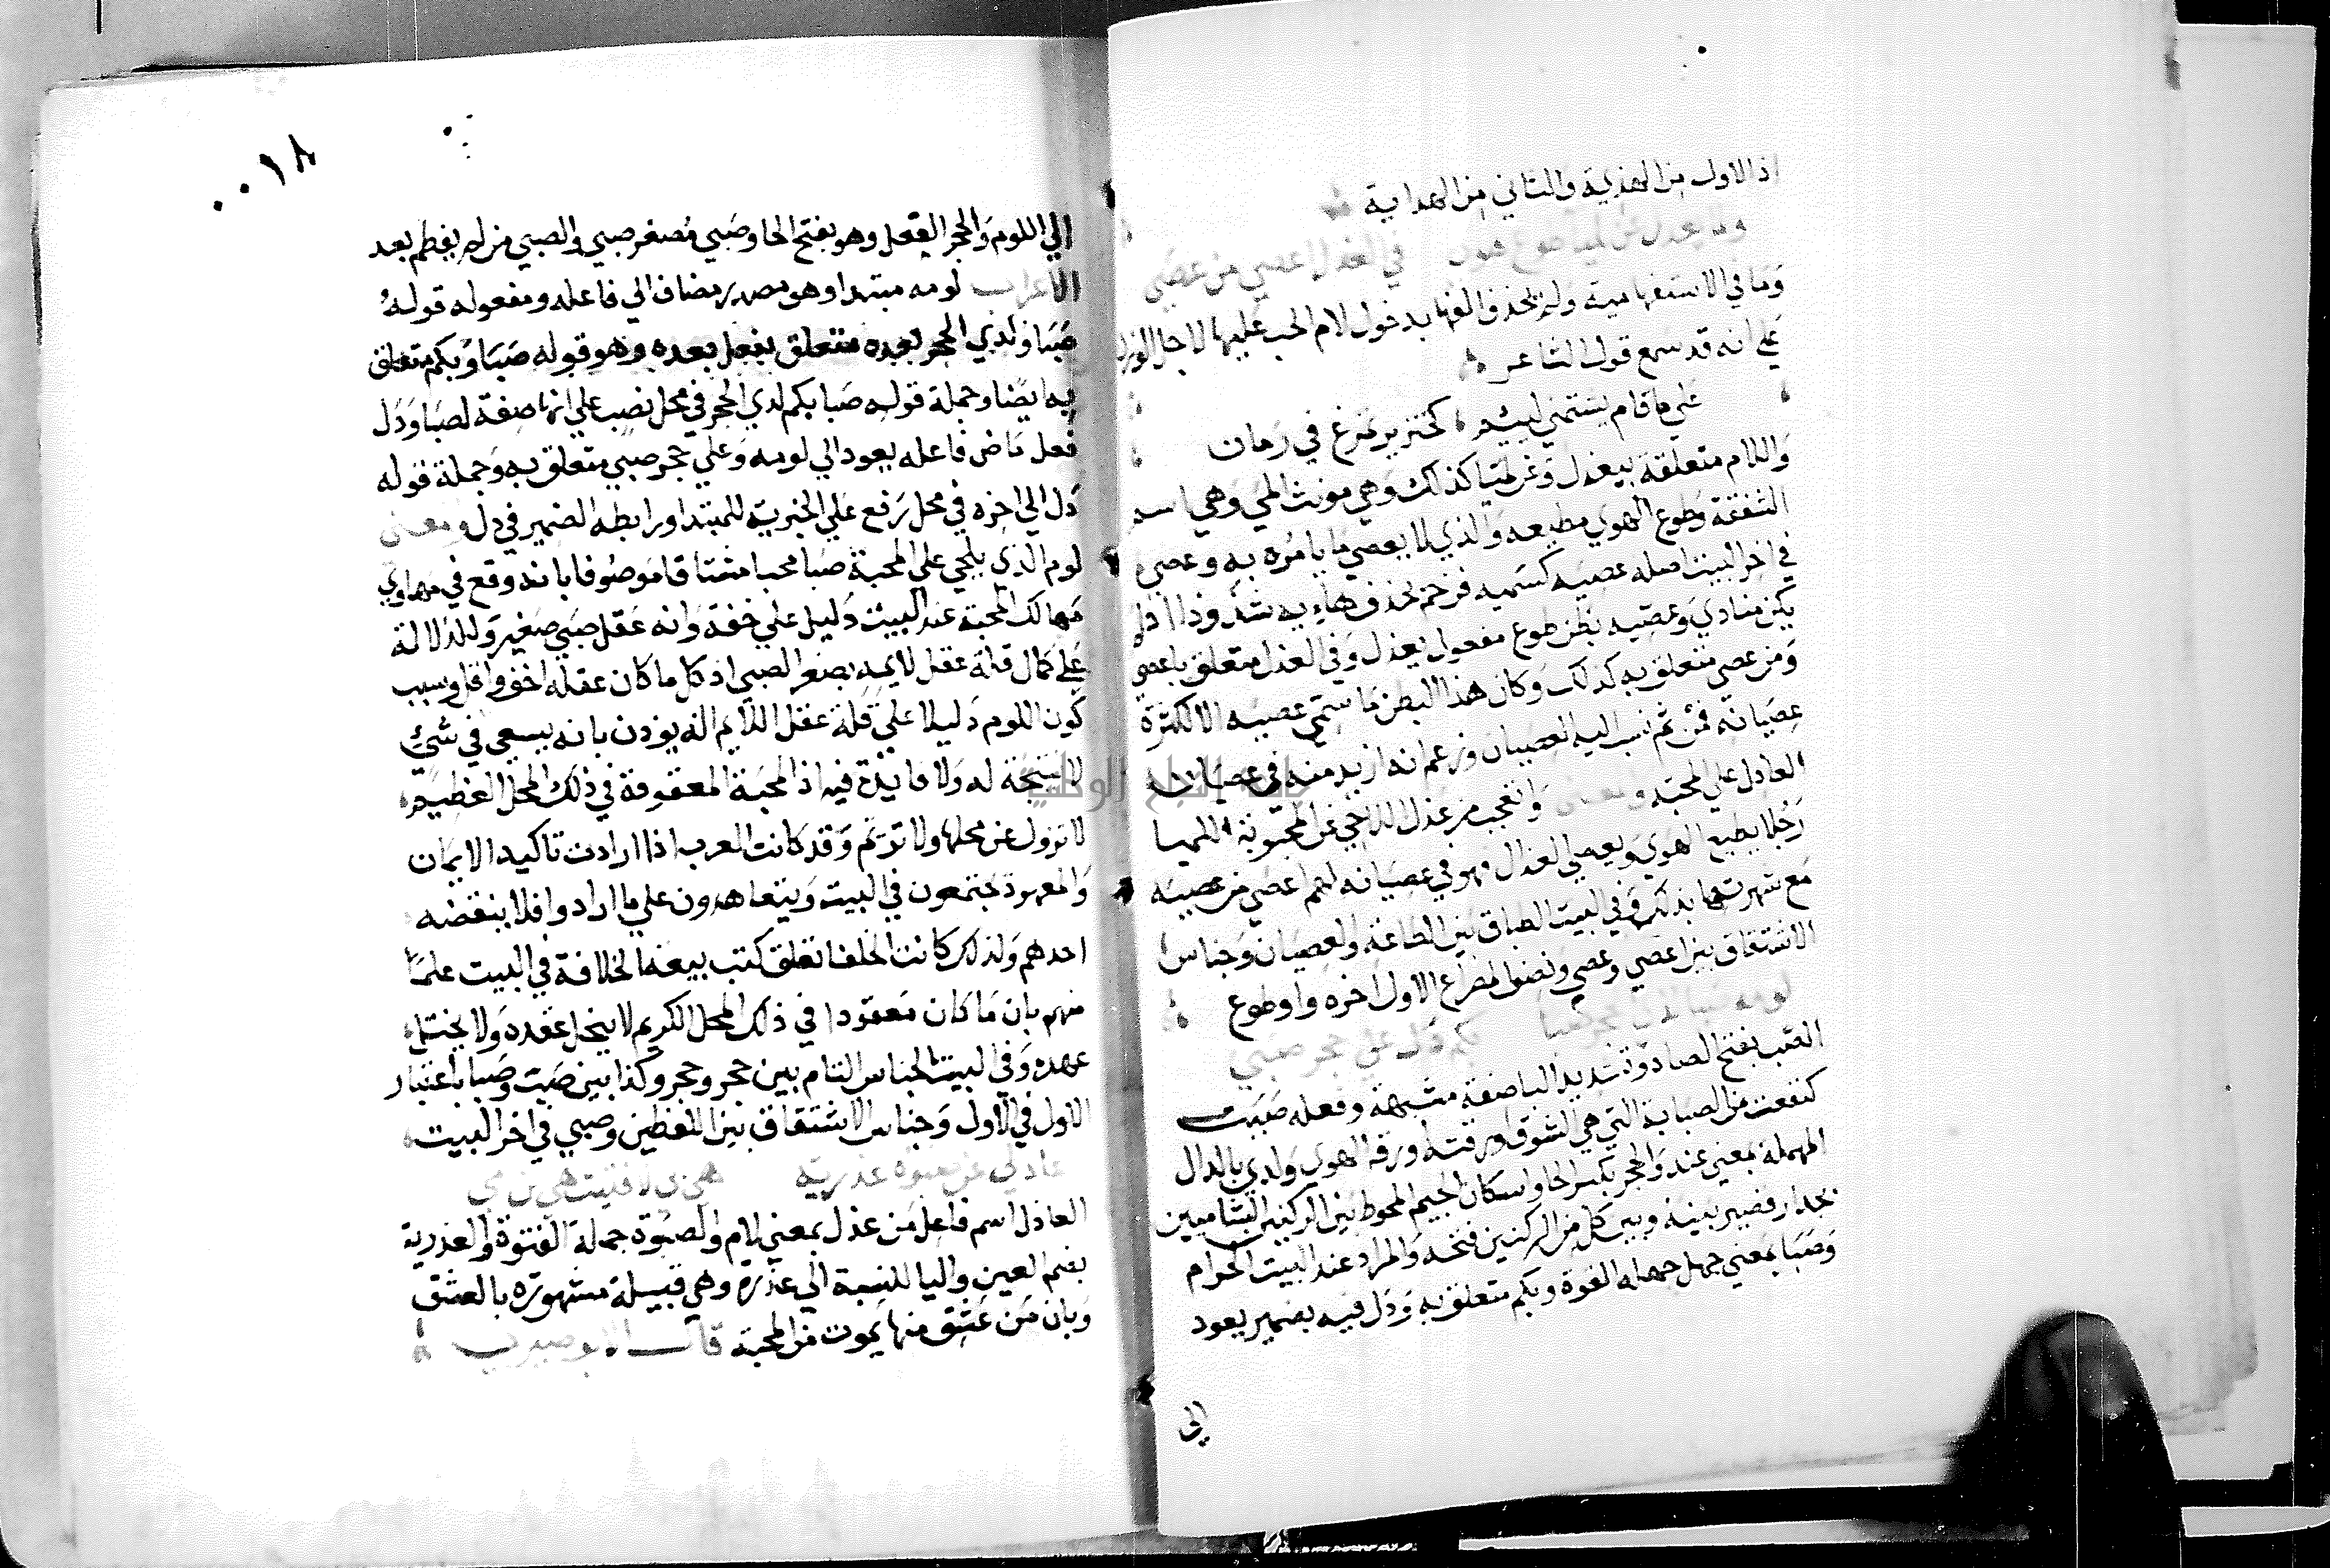 اذ الاول من الهذية والثاني من الهداية
في العذل اعصي من عصي
وما في الاستفهامية ولم تحذف الفها بدخول لام الجر عليها لاجل الوزن
علي انه قد سمع قول الشاعر
علي ما قام يشتمني لييم كخنزير تمرغ في رمان
واللام متعلقة بيعذل وعن لميا كذلك وهي مونث المي وهي اسم
الشفة وطوع الهوي مطيعه والذي لا يعصي ما يامره به وعصي
في اخر البيت اصله عصيه كسميه فرخم بحذف هايه شذوذا اذ لم
يكن منادي وعصيه بطن طوع مفعول يعذل وفي العذل متعلق باعصي
ومن عصي متعلق به كذلك وكان هذا البطن ما سمي عصيه الا لكثرة
عصيانه فمن ثم نسب اليه العصيان وزعم انه ازيد منه في عصيان
العاذل علي المحبة ومعني وا تعجب من عذل اللاحي عن المحبوبة اللميا
رجلا يطيع الهوي ويعصي العذال وهو في عصيانه لهم اعصي من عصيه
مع شهرتها بذلك وفي البيت الطباق بين الطاعة والعصيان وجناس
الاشتقاق بين اعصي وعصي ونصف المصراع الاول اخره واو طوع
لومه صبا لدي الحجر صبا بكم دل علي حجر صبي
الصب بفتح الصاد وتشديد البا صفة مشبهة وفعله صببت
كنقعت من الصبابة التي هي الشوق او رقته ورقة الهوي ولدي بالدال
المهملة بمعني عند والحجر بكسر الحا واسكان الجيم المحوط بين الركنين الشاميين
بجدار قصير بينه وبين كل من الركنين فتحة والمراد عند البيت الحرام
وصبا بمعني جهل جهله الفتوة وبكم متعلق به ودل فيه بضمير يعود
الي
٠٠١٨
الي اللوم والحجر العقل وهو بفتح الحا وصبي مصغر صبي والصبي من لم يفطم بعد
الاعراب لومه مبتدا وهو مصدر مضاف الي فاعله ومفعوله قوله
صبا ولدي الحجر بعده متعلق بفعل بعده وهو قوله صبا وبكم متعلق
به ايضا وجملة قوله صبا بكم لدي الحجر في محل نصب علي انها صفة لصبا ودل
فعل ماض فاعله يعود الي لومه وعلي حجر صبي متعلق به وجملة قوله
دل الي اخره في محل رفع علي الخبرية للمبتدا ورابطه الضمير في دل ومعني
لوم الذي يلحي علي المحبة صبا محبا مشتاقا موصوفا بانه وقع في مهاوي
مهالك المحبة عند البيت دليل علي خفة وانه عقل صبي صغير وللدلالة
علي كمال قلة عقل لايمه بصغر الصبي اذ كل ما كان عقله اخف واقل وسبب
كون اللوم دليلا علي قلة عقل اللايم انه يوذن بانه يسعي في شي
لا نتيجة له ولا فايدة فيه اذ المحبة المعقودة في ذلك المحل العظيم
لا تزول عن محلها ولا تريم وقد كانت العرب اذا ارادت تاكيد الايمان
والعهود يجتمعون في البيت ويتعاهدون علي ما ارادوا فلا ينقضه
احدهم ولذلك كانت الخلفا تعلق كتب بيعة الخلافة في البيت علما
منهم بان ما كان معقودا في ذلك المحل الكريم لا ينحل عقده ولا يختل
عهده وفي البيت الجناس التام بين حجر وحجر وكذا بين صب وصبا باعتبار
الاول في الاول وجناس الاشتقاق بين اللفظين وصبي في اخر البيت
عاذلي عن صبوة عذرية هي بي لا فتيت هي بن بي
العاذل اسم فاعل من عذل بمعني لام والصبوة جهلة الفتوة والعذرية
بضم العين واليا للنسبة الي عذرة وهي قبيلة مشهورة بالعشق
وبان من عشق منها يموت من المحبة قال الابوصيري